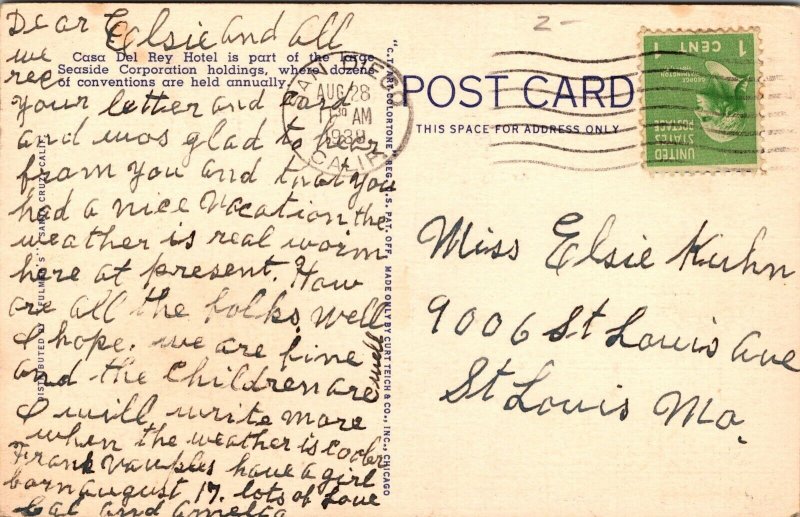 Dear Elsie and all
we
Casa Del Rey Hotel is part of the large
Seaside Corporation holdings, where dozens
of conventions are held annually.
rec
your letter and card
and was glad to hear
from you and that you
had a nice vacation the
weather is real worm
here at present. How
are all the folks. well
I hope. we are fine
and the children are
same
I will write more
when the weather is cooler
Frank have a girl
born august 17. lots of love
Cal and amelia
DISTRIBUTED BY "FULMER'S" SANTA CRUZ, CALIF.
"C.T. ART-COLORTONE" REG. U.S. PAT. OFF. MADE ONLY BY CURT TEICH & CO., INC., CHICAGO
SAN DIEGO
AUG 28
11 30 AM
1939
CALIF.
2-
POST CARD
THIS SPACE FOR ADDRESS ONLY
1 CENT 1
GEORGE WASHINGTON
UNITED
STATES
POSTAGE
Miss Elsie Kuhn
9006 St Louis ave
St Louis Mo.